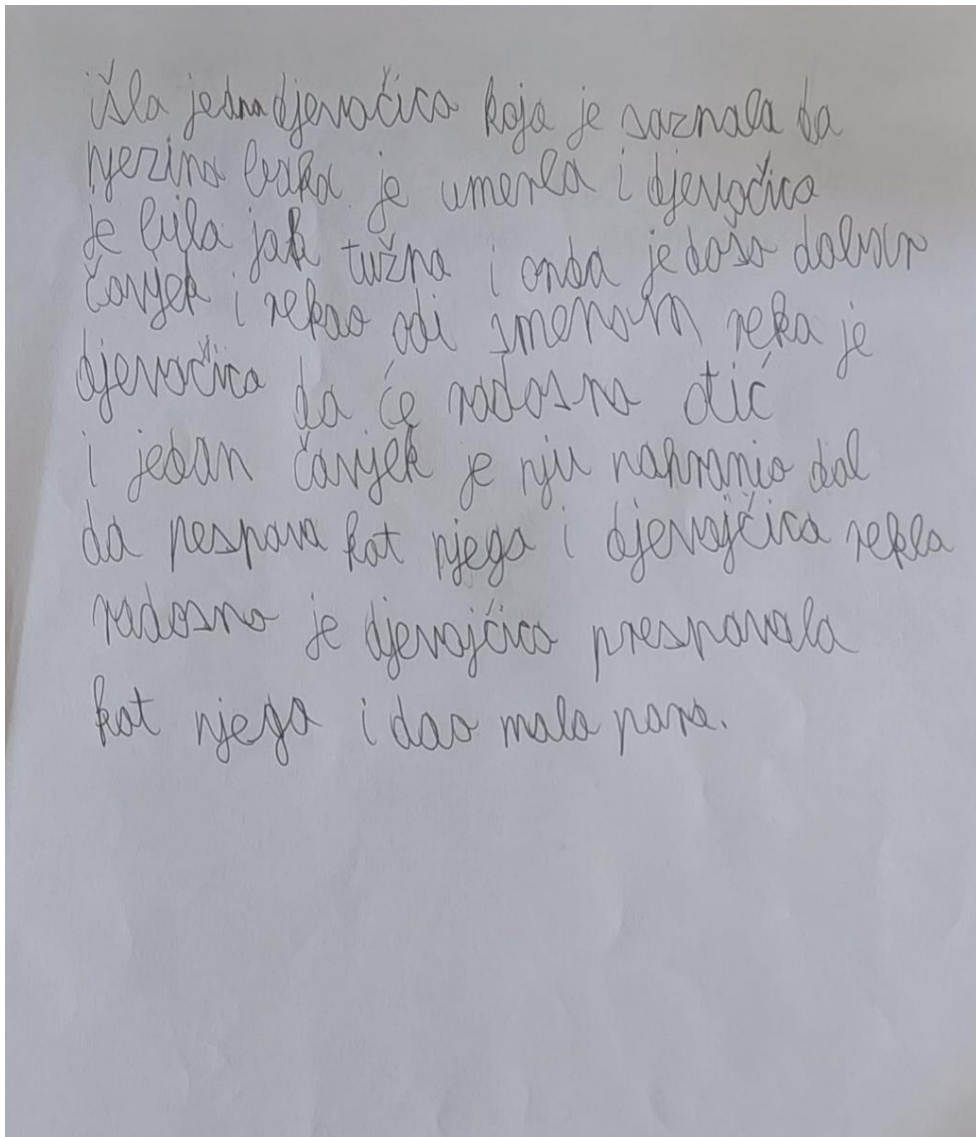 išla jedna djevačica koja je saznala da
njezina baka je umerla i djevočica
je bila jak tužna i onda je došo dobar
čavjek i rekao odi smenom reka je
djevočica da će radosna otić
i jedan čavjek je nju nahranio dal
da pespava kot njega i djevajčica rekla
radosno je djevajčica prespavala
kot njega i dao malo para.